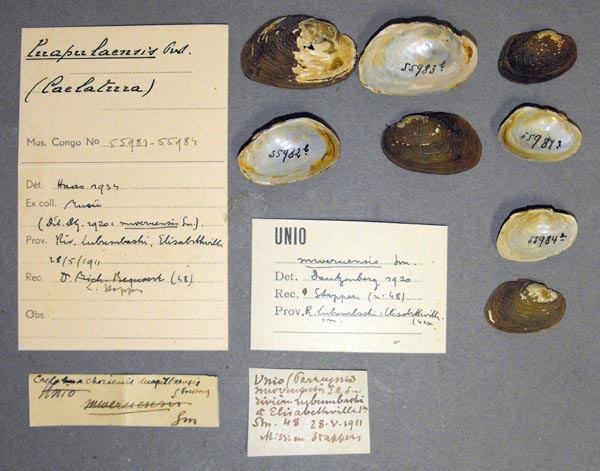 luapulaensis Prd.
(Caelatura)
Mus. Congo No 55983-55984
Dét. Haas 1934
Ex coll. Musée
(Dét. Dtz. 1920: mweruensis Sm.)
Prov. Riv. Lubumbashi, Elisabethville
28/5/1911
Rec. D. Bequaert (48)
L. Stappers
Obs.
UNIO
mweruensis Sm.
Det. Dautzenberg 1920
Rec. Stappers (n. 48)
Prov. R. Lubumbashi - Elisabethville
choziensis luapulaensis
UNIO
mweruensis
Sm
Unio (Parreysia
mweruensis Sm
rivière Lubumbashi
à Elisabethville
Stn. 48 28-V-1911
Mission Stappers